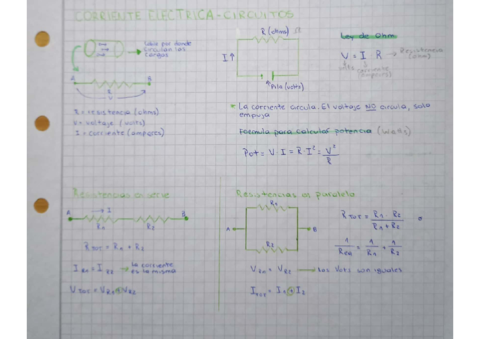 CORRIENTE ELECTRICA - CIRCUITOS
Solo por donde
circulan las
cargas
A B
V
R = resistencia (ohms)
V = voltaje (volts)
I = corriente (ampers)
R (ohms) Ω
I ↑
Pila (volts)
Ley de Ohm
V = I R → Resistencia
(ohm)
corriente
(ampers)
* La corriente circula. El voltaje NO circula, solo
empuja
Fórmula para calcular potencia (watts)
Pot = V · I = R · I² = V²/R
Resistencias en serie
A → I B
R₁ R₂
R TOT = R₁ + R₂
I R₁ = I R₂ → la corriente
es la misma
V TOT = V R₁ + V R₂
Resistencias en paralelo
R₁
A B
R₂
R TOT = R₁ · R₂ / R₁ + R₂
1/R EQ = 1/R₁ + 1/R₂
V R₁ = V R₂ → Los Volts son iguales
I TOT = I₁ + I₂